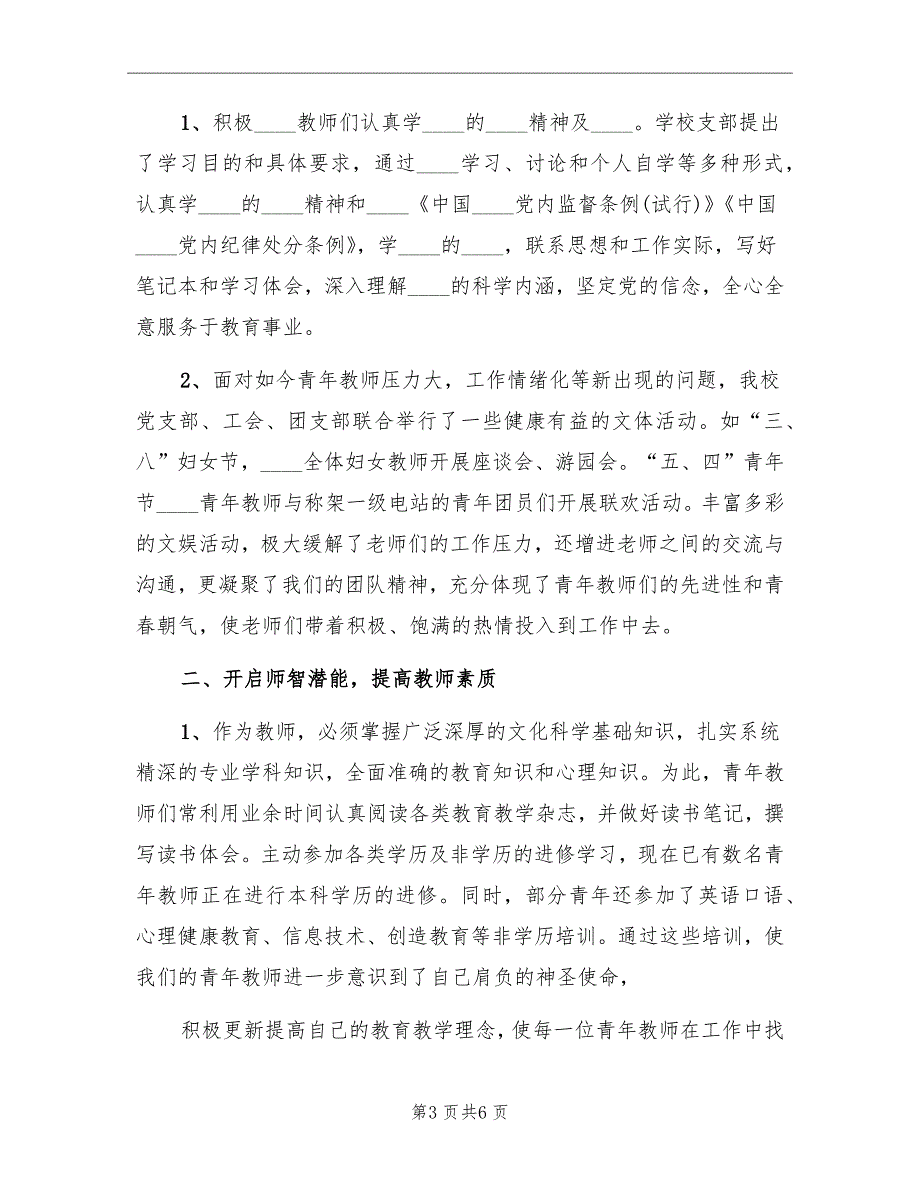 1、积极____教师们认真学____的____精神及____。学校支部提出
了学习目的和具体要求，通过____学习、讨论和个人自学等多种形式，
认真学____的____精神和____《中国____党内监督条例(试行)》《中国
____党内纪律处分条例》，学____的____，联系思想和工作实际，写好
笔记本和学习体会，深入理解____的科学内涵，坚定党的信念，全心全
意服务于教育事业。
2、面对如今青年教师压力大，工作情绪化等新出现的问题，我校
党支部、工会、团支部联合举行了一些健康有益的文体活动。如“三、
八”妇女节，____全体妇女教师开展座谈会、游园会。“五、四”青年
节____青年教师与称架一级电站的青年团员们开展联欢活动。丰富多彩
的文娱活动，极大缓解了老师们的工作压力，还增进老师之间的交流与
沟通，更凝聚了我们的团队精神，充分体现了青年教师们的先进性和青
春朝气，使老师们带着积极、饱满的热情投入到工作中去。
二、开启师智潜能，提高教师素质
1、作为教师，必须掌握广泛深厚的文化科学基础知识，扎实系统
精深的专业学科知识，全面准确的教育知识和心理知识。为此，青年教
师们常利用业余时间认真阅读各类教育教学杂志，并做好读书笔记，撰
写读书体会。主动参加各类学历及非学历的进修学习，现在已有数名青
年教师正在进行本科学历的进修。同时，部分青年还参加了英语口语、
心理健康教育、信息技术、创造教育等非学历培训。通过这些培训，使
我们的青年教师进一步意识到了自己肩负的神圣使命，
积极更新提高自己的教育教学理念，使每一位青年教师在工作中找
第3 页共6 页